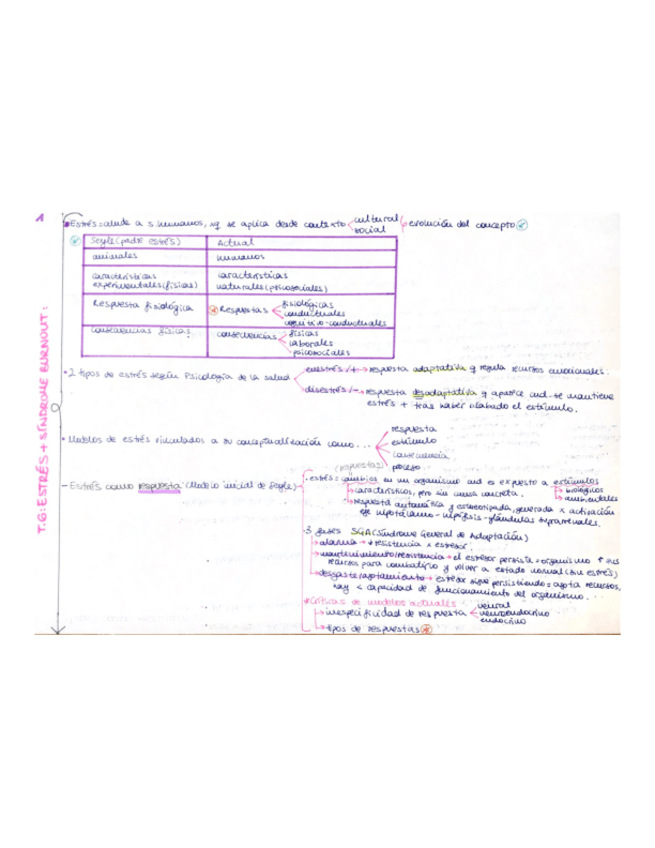 1
T.6: ESTRÉS + SÍNDROME BURNOUT:
Estrés: alude a s humanos, xq se aplica desde contexto cultural social evolución del concepto
Seyle (padre estrés) Actual
animales humanos
características experimentales (físicas) características naturales (psicosociales)
Respuesta fisiológica Respuestas fisiológicas
conductuales
cognitivo-conductuales
consecuencias físicas. consecuencias físicas
laborales
psicosociales
• 2 tipos de estrés según Psicología de la salud
euestrés/+ → respuesta adaptativa q regula recursos emocionales.
disestrés/- → respuesta desadaptativa q aparece cnd. se mantiene
estrés + tras haber acabado el estímulo.
• Modelos de estrés vinculados a su conceptualización como...
respuesta
estímulo
consecuencia
proceso
- Estrés como respuesta (Modelo inicial de Seyle)
(respuestas)
· estrés = cambios en un organismo cnd es expuesto a estímulos
biológicos
ambientales
característicos, pero sin causa concreta.
· respuesta automática y estereotipada, generada x activación
eje hipotálamo - hipófisis - glándulas suprarrenales.
· 3 fases SGA (Síndrome General de Adaptación)
→ alarma → resistencia x estresor.
→ mantenimiento/resistencia → el estresor persista = organismo ↑ sus
recursos para combatirlo y volver a estado normal (sin estrés)
→ desgaste/agotamiento → estresor sigue persistiendo = agota recursos,
hay < capacidad de funcionamiento del organismo...
Críticas de modelos actuales
→ inespecificidad de respuesta neural
neuroendocrino
endocrino
→ tipos de respuestas